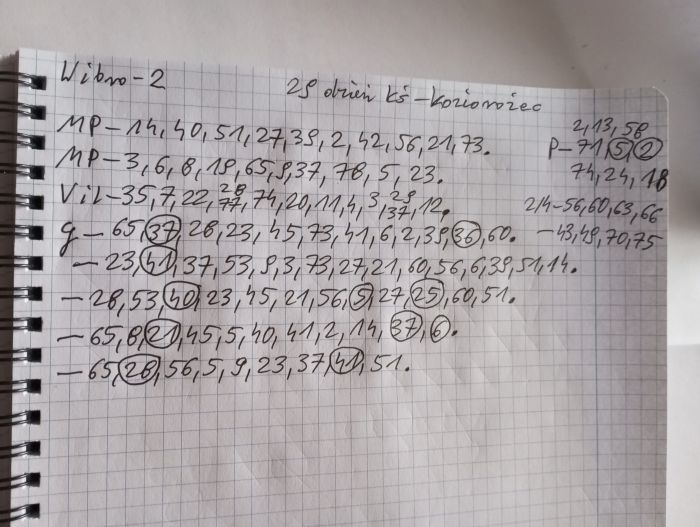 Wibro-2
29 dzień kś-koziorożec
MP-14,40,51,27,39,2,42,56,21,73.
MP-3,6,8,19,65,9,37,78,5,23.
Vil-35,7,22,28/77,74,20,11,4,3,29/37,12.
g-65,37,28,23,45,73,41,6,2,39,36,60.
-23,41,37,53,9,3,73,27,21,60,56,6,39,51,14.
-28,53,40,23,45,21,56,5,27,25,60,51.
-65,8,21,45,5,40,41,2,14,37,6.
-65,28,56,5,9,23,37,41,51.
2,13,58
P-71,5,2
74,24,18
2/4-56,60,63,66
-43,49,70,75